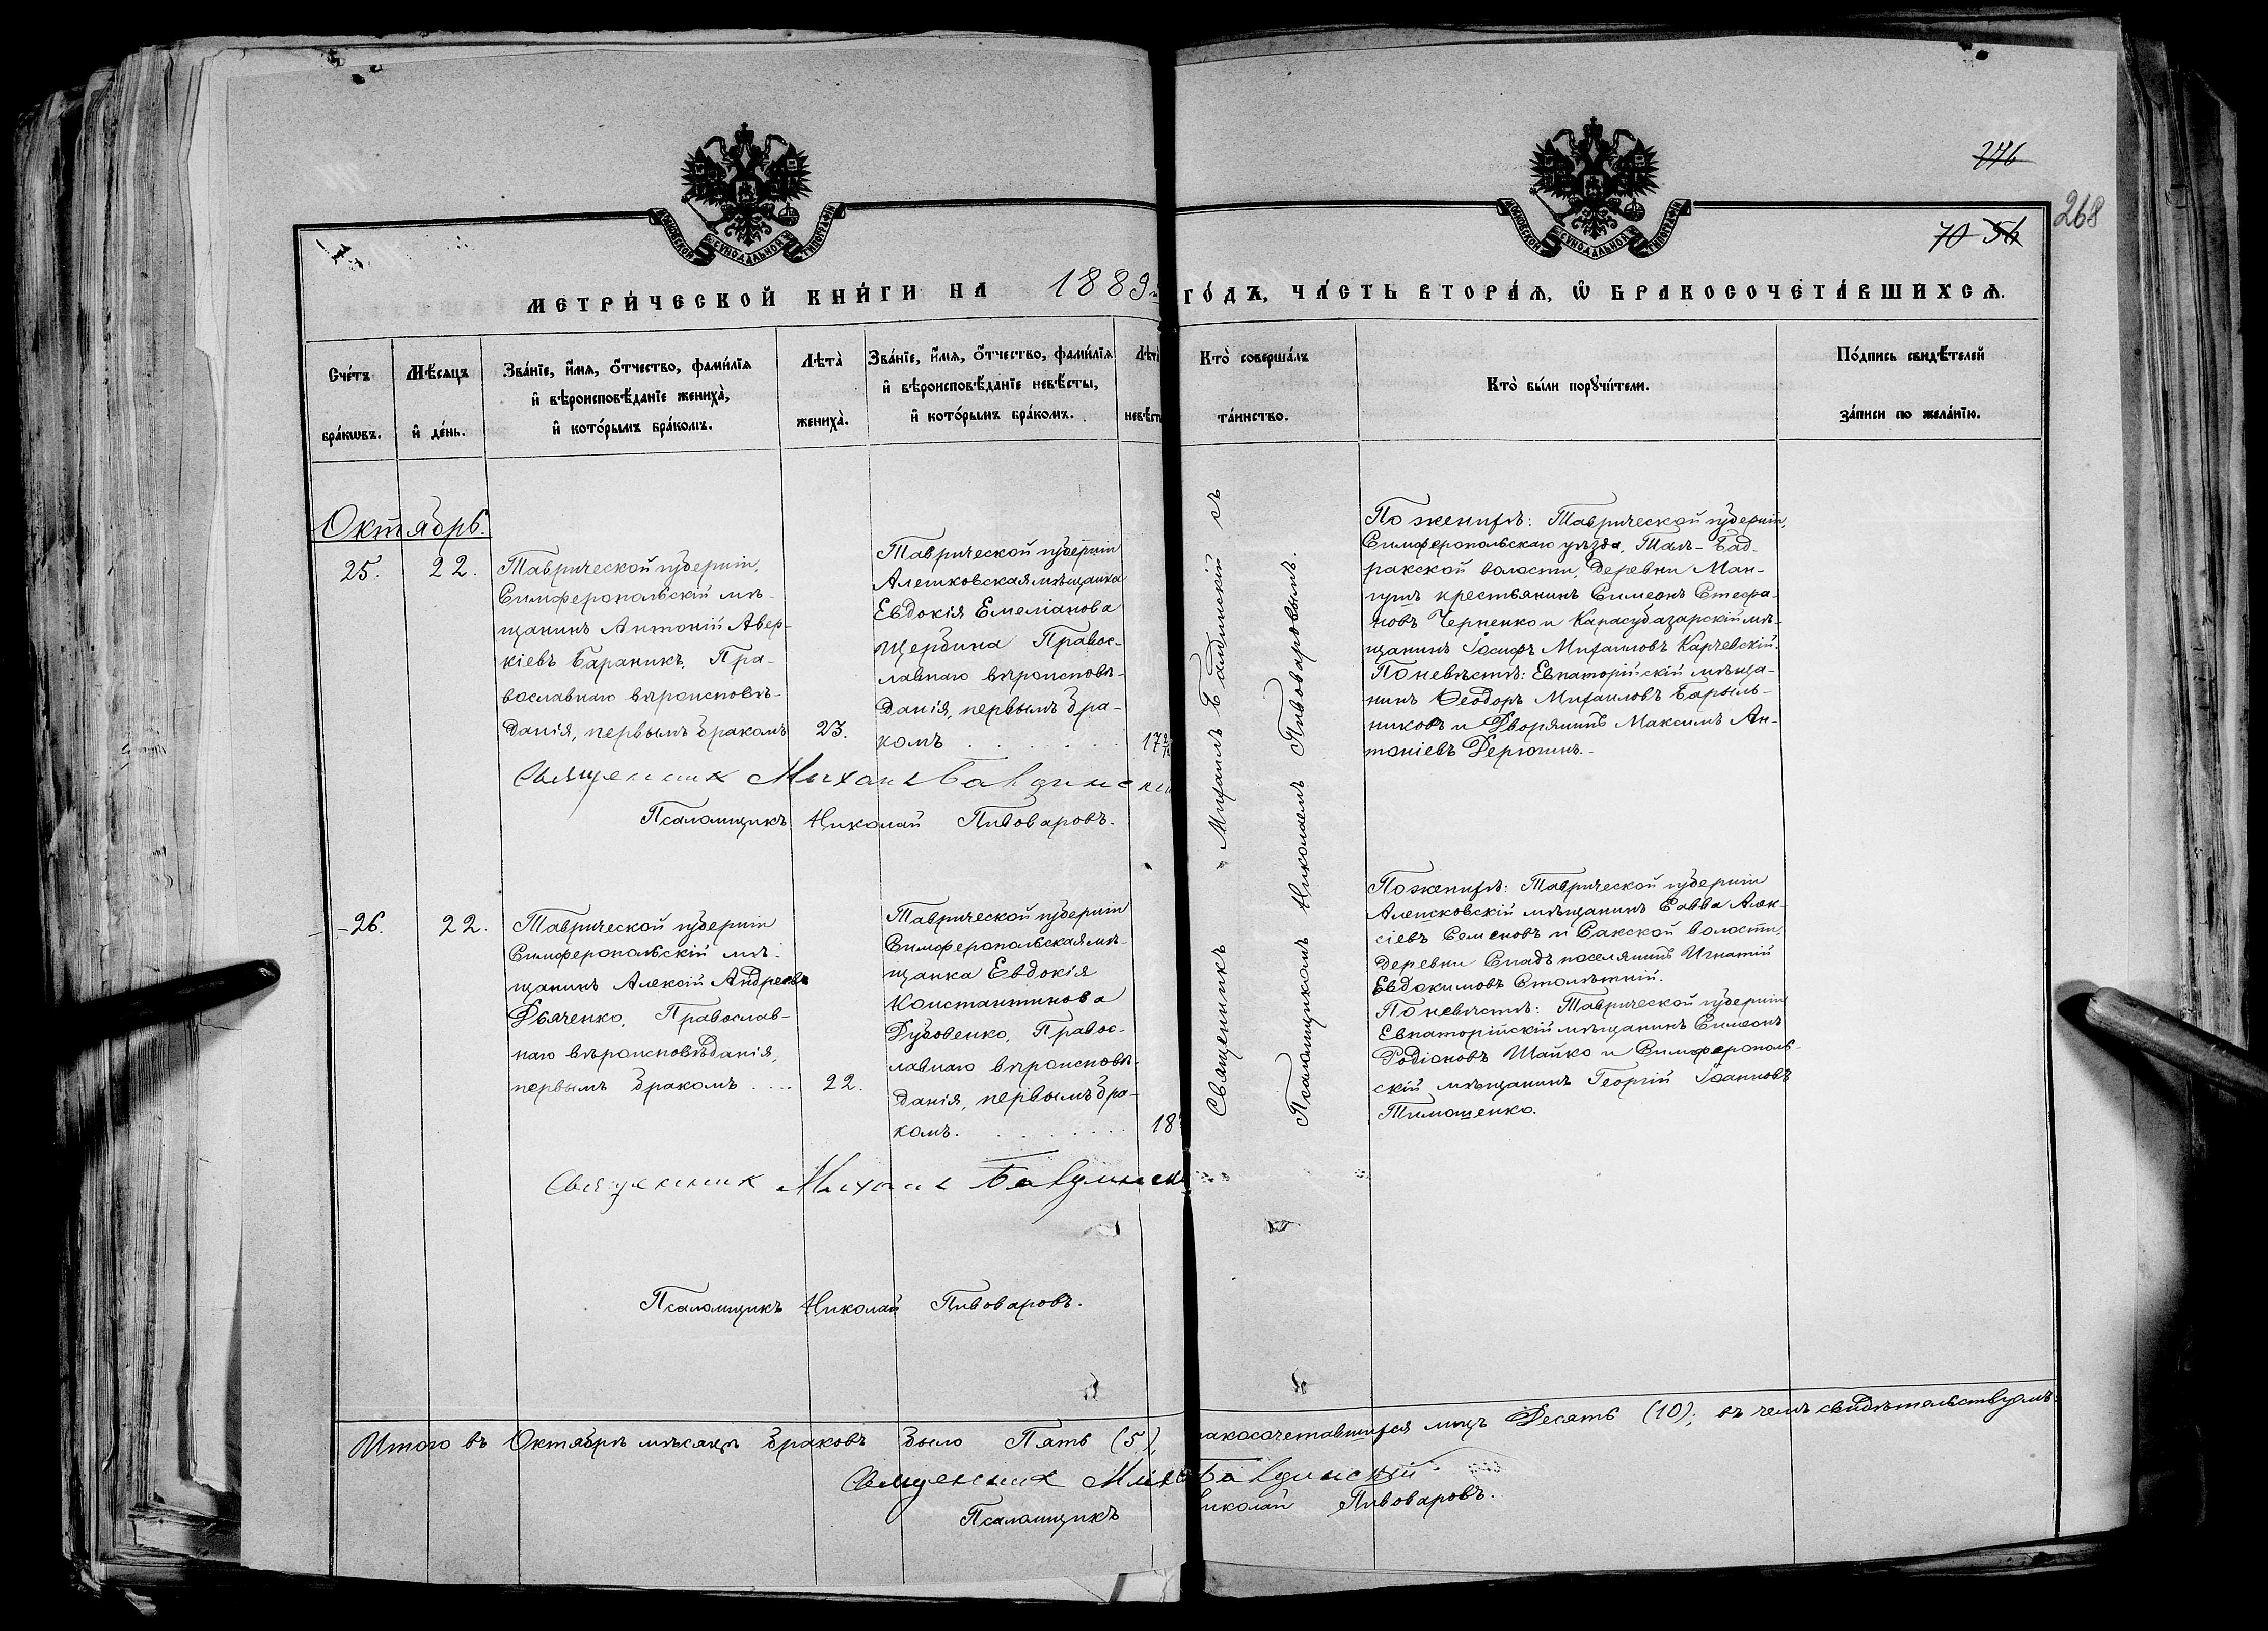 276
268
70 56
МОСКОВСКОЙ СѴНОДАЛЬНОЙ ТИПОГРАФІИ
МОСКОВСКОЙ СѴНОДАЛЬНОЙ ТИПОГРАФІИ
МЕТРИ́ЧЕСКОЙ КНИ́ГИ НА 1889й ГО́ДЪ, ЧА́СТЬ ВТОРА́Ѧ, Ѡ҆ БРАКОСОЧЕТА́ВШИХСѦ.
Сче́тъ
бра́кѡвъ.
Мѣ́сѧцъ
и҆ де́нь.
Зва́нїе, и҆́мѧ, ѻ҆́тчество, фами́лїѧ
и҆ вѣроисповѣ́данїе жениха̀,
и҆ кото́рымъ бра́комъ.
Лѣта̀
жениха̀.
Зва́нїе, и҆́мѧ, ѻ҆́тчество, фами́лїѧ
и҆ вѣроисповѣ́данїе невѣ́сты,
и҆ кото́рымъ бра́комъ.
Лѣта̀
невѣ́сты
Кто̀ соверша́лъ
та́инство.
Кто̀ бы́ли порꙋчи́тели.
По́дпись свидѣ́телей
за́писи по жела́нїю.
Октябрь.
25.
22.
Таврической губерніи,
Симферопольскій мѣ-
щанинъ Антоній Авер-
кіевъ Бараникъ, Пра-
вославнаго вѣроисповѣ-
данія, первымъ бракомъ
23.
Таврической губерніи
Алешковская мѣщанка
Евдокія Емеліанова
Щербина Правос-
лавнаго вѣроисповѣ-
данія, первымъ бра-
комъ
17
Священникъ Михаилъ Бавдинскій съ
Псаломщикомъ Николаемъ Пивоваровымъ.
По женихѣ: Таврической губерніи,
Симферопольскаго уѣзда, Тат-Бад-
ракской волости, деревни Ман-
гушъ крестьянинъ Симеонъ Стефа-
новъ Черненко и Карасубазарскій мѣ-
щанинъ Іосифъ Михаиловъ Карчевскій.
По невѣстѣ: Евпаторійскій мѣща-
нинъ Ѳеодоръ Михаиловъ Барыль-
никовъ и Дворянинъ Максимъ Ан-
тоніевъ Дерюгинъ.
Священник Михаил Бавдинский
Псаломщикъ Николай Пивоваровъ.
26.
22.
Таврической губерніи
Симферопольскій мѣ-
щанинъ Алексій Андреевъ
Дьяченко, Православ-
наго вѣроисповѣданія,
первымъ бракомъ
22.
Таврической губерніи
Симферопольская мѣ-
щанка Евдокія
Константинова
Дубовенко, Правос-
лавнаго вѣроисповѣ-
данія, первымъ бра-
комъ.
18
По женихѣ: Таврической губерніи
Алешковскій мѣщанинъ Савва Алек-
сіевъ Семеновъ и Сакской волости,
деревни поселянинъ Игнатій
Евдокимовъ Столѣтній.
По невѣстѣ: Таврической губерніи
Евпаторійскій мѣщанинъ Симеонъ
Родіоновъ Шайко и Симферополь-
скій мѣщанинъ Георгій Іоанновъ
Тимошенко.
Священник Михаил Бавдински
Псаломщикъ Николай Пивоваровъ.
Итого въ Октябрѣ мѣсяцѣ браковъ было Пять (5), акосочетавшихся лицъ Десять (10); въ чемъ свидѣтельствуемъ:
Священник Мих Бавдинский
Псаломщикъ иколай Пивоваровъ.